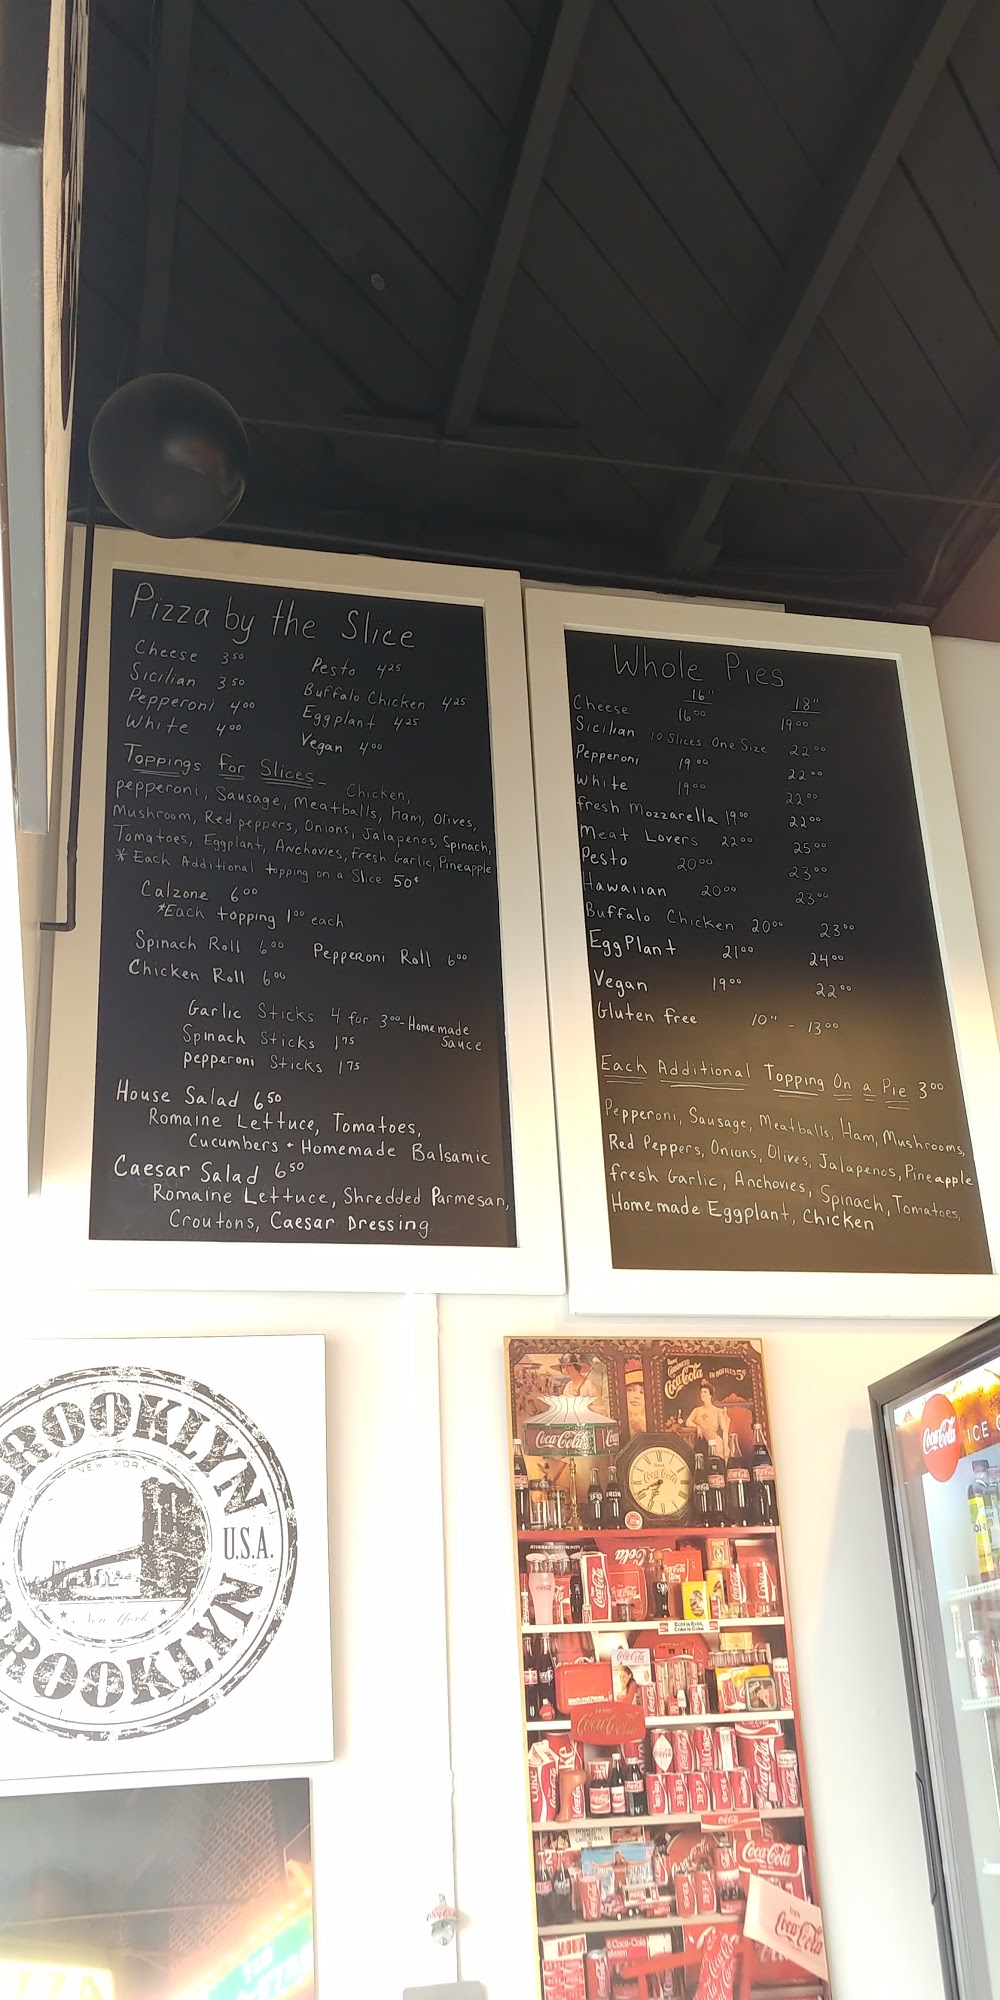 Pizza by the Slice
Cheese 3⁵⁰
Sicilian 3⁵⁰
Pepperoni 4⁰⁰
White 4⁰⁰
Pesto 4²⁵
Buffalo Chicken 4²⁵
Eggplant 4²⁵
Vegan 4⁰⁰
Toppings for Slices- Chicken,
pepperoni, Sausage, Meatballs, Ham, Olives,
Mushroom, Red peppers, Onions, Jalapenos, Spinach,
Tomatoes, Eggplant, Anchovies, fresh Garlic, Pineapple
* Each Additional topping on a Slice 50¢
Calzone 6⁰⁰
*Each topping 1⁰⁰ each
Spinach Roll 6⁰⁰ Pepperoni Roll 6⁰⁰
Chicken Roll 6⁰⁰
Garlic Sticks 4 for 3⁰⁰-Homemade
Sauce
Spinach Sticks 1⁷⁵
pepperoni Sticks 1⁷⁵
House Salad 6⁵⁰
Romaine Lettuce, Tomatoes,
Cucumbers + Homemade Balsamic
Caesar Salad 6⁵⁰
Romaine Lettuce, Shredded Parmesan,
Croutons, Caesar Dressing
Whole Pies
16" 18"
Cheese 16⁰⁰ 19⁰⁰
Sicilian 10 Slices One Size 22⁰⁰
Pepperoni 19⁰⁰ 22⁰⁰
White 19⁰⁰ 22⁰⁰
fresh Mozzarella 19⁰⁰ 22⁰⁰
Meat Lovers 22⁰⁰ 25⁰⁰
Pesto 20⁰⁰ 23⁰⁰
Hawaiian 20⁰⁰ 23⁰⁰
Buffalo Chicken 20⁰⁰ 23⁰⁰
EggPlant 21⁰⁰ 24⁰⁰
Vegan 19⁰⁰ 22⁰⁰
Gluten free 10" - 13⁰⁰
Each Additional Topping On a Pie 3⁰⁰
Pepperoni, Sausage, Meatballs, Ham, Mushrooms,
Red Peppers, Onions, Olives, Jalapenos, Pineapple
fresh Garlic, Anchovies, Spinach, Tomatoes,
Homemade Eggplant, Chicken
BROOKLYN
NEW YORK
U.S.A.
New York
BROOKLYN
Coca-Cola IN BOTTLES 5¢
Coca-Cola
Coca-Cola
Coca-Cola
Coca-Cola
Coca-Cola
Coca-Cola
Coca-Cola ICE